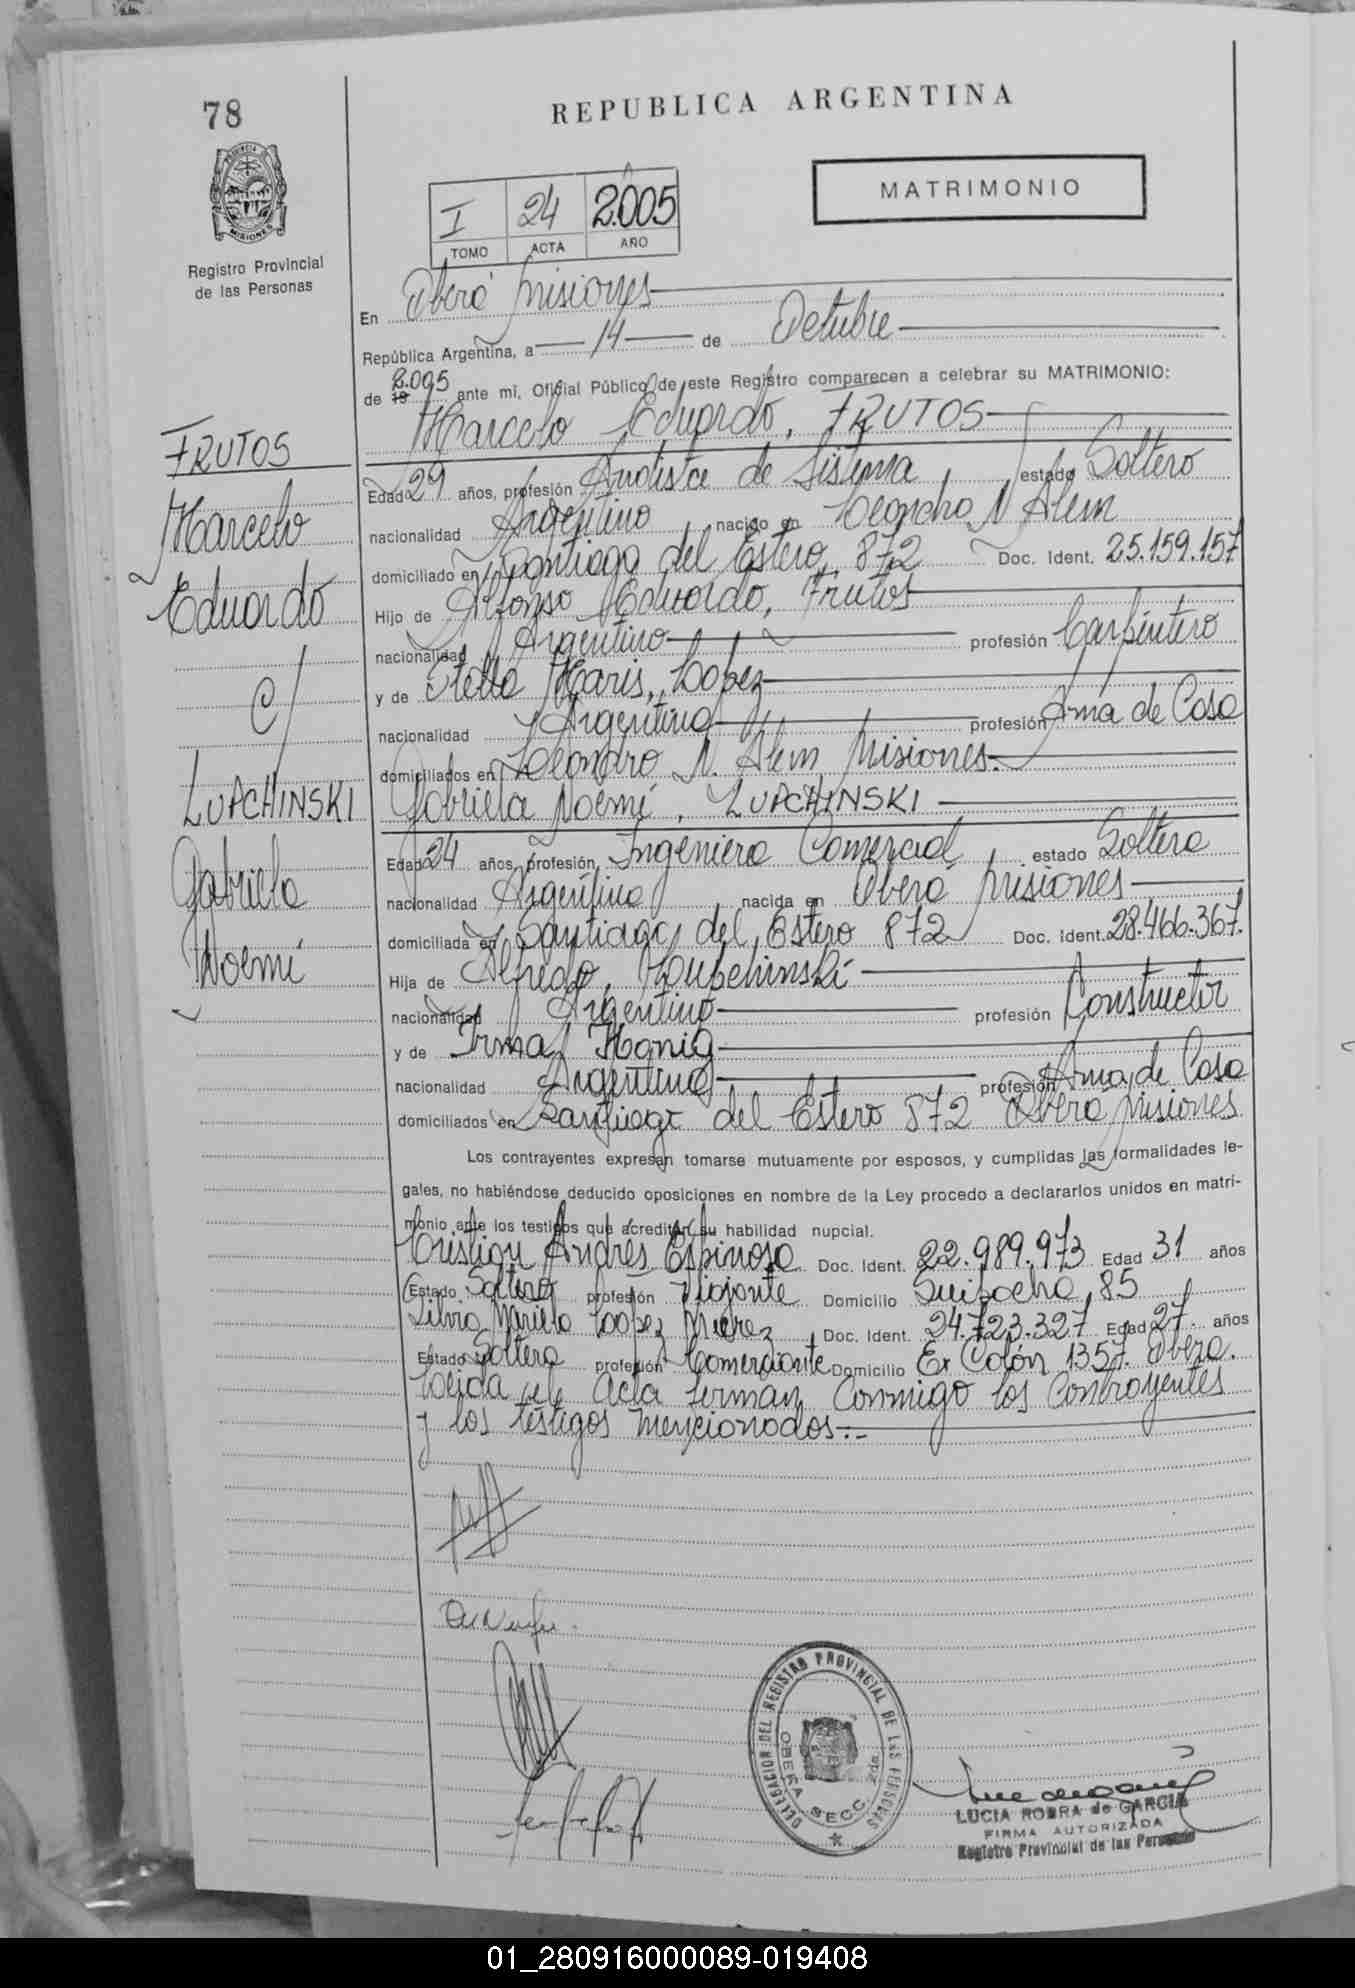 78
REPUBLICA ARGENTINA
PROVINCIA
MISIONES
Registro Provincial
de las Personas
MATRIMONIO
I 24 2.005
TOMO ACTA AÑO
En Oberá Misiones
República Argentina, a 14 de Octubre
de 19 2.005 ante mí, Oficial Público de este Registro comparecen a celebrar su MATRIMONIO:
Marcelo Eduardo, FRUTOS
FRUTOS
Marcelo
Eduardo
c/
LUPCHINSKI
Gabriela
Noemí
Edad 29 años, profesión Analista de Sistema estado Soltero
nacionalidad Argentino nacido en Leandro N Alem
domiciliado en Santiago del Estero, 872 Doc. Ident. 25.159.157
Hijo de Alfonso Eduardo, Frutos
nacionalidad Argentino profesión Carpintero
y de Stella Maris, Lopez
nacionalidad Argentina profesión Ama de Casa
domiciliados en Leandro N. Alem Misiones.
Gabriela Noemí, LUPCHINSKI
Edad 24 años, profesión Ingeniera Comercial estado Soltera
nacionalidad Argentina nacida en Oberá Misiones
domiciliada en Santiago del Estero 872 Doc. Ident. 28.466.367.
Hija de Alfredo, Lupchinski
nacionalidad Argentino profesión Constructor
y de Irma Honig
nacionalidad Argentina profesión Ama de Casa
domiciliados en Santiago del Estero 872 Oberá Misiones
Los contrayentes expresan tomarse mutuamente por esposos, y cumplidas las formalidades le-
gales, no habiéndose deducido oposiciones en nombre de la Ley procedo a declararlos unidos en matri-
monio ante los testigos que acreditan su habilidad nupcial.
Cristian Andrés Espinosa Doc. Ident. 22.989.973 Edad 31 años
Estado Soltero profesión Viajante Domicilio Suipacha 85
Silvia Mariela Lopez Doc. Ident. 24.723.327 Edad 27 años
Estado Soltera profesión Comerciante Domicilio Ex Colón 1357. Oberá.
Leida el Acta firman conmigo los Contrayentes
y los testigos mencionados.-
DELEGACION DEL REGISTRO PROVINCIAL DE LAS PERSONAS
OBERA SECC. 2da.
LUCIA ROBRA de GARCIA
FIRMA AUTORIZADA
Registro Provincial de las Personas
01_280916000089-019408